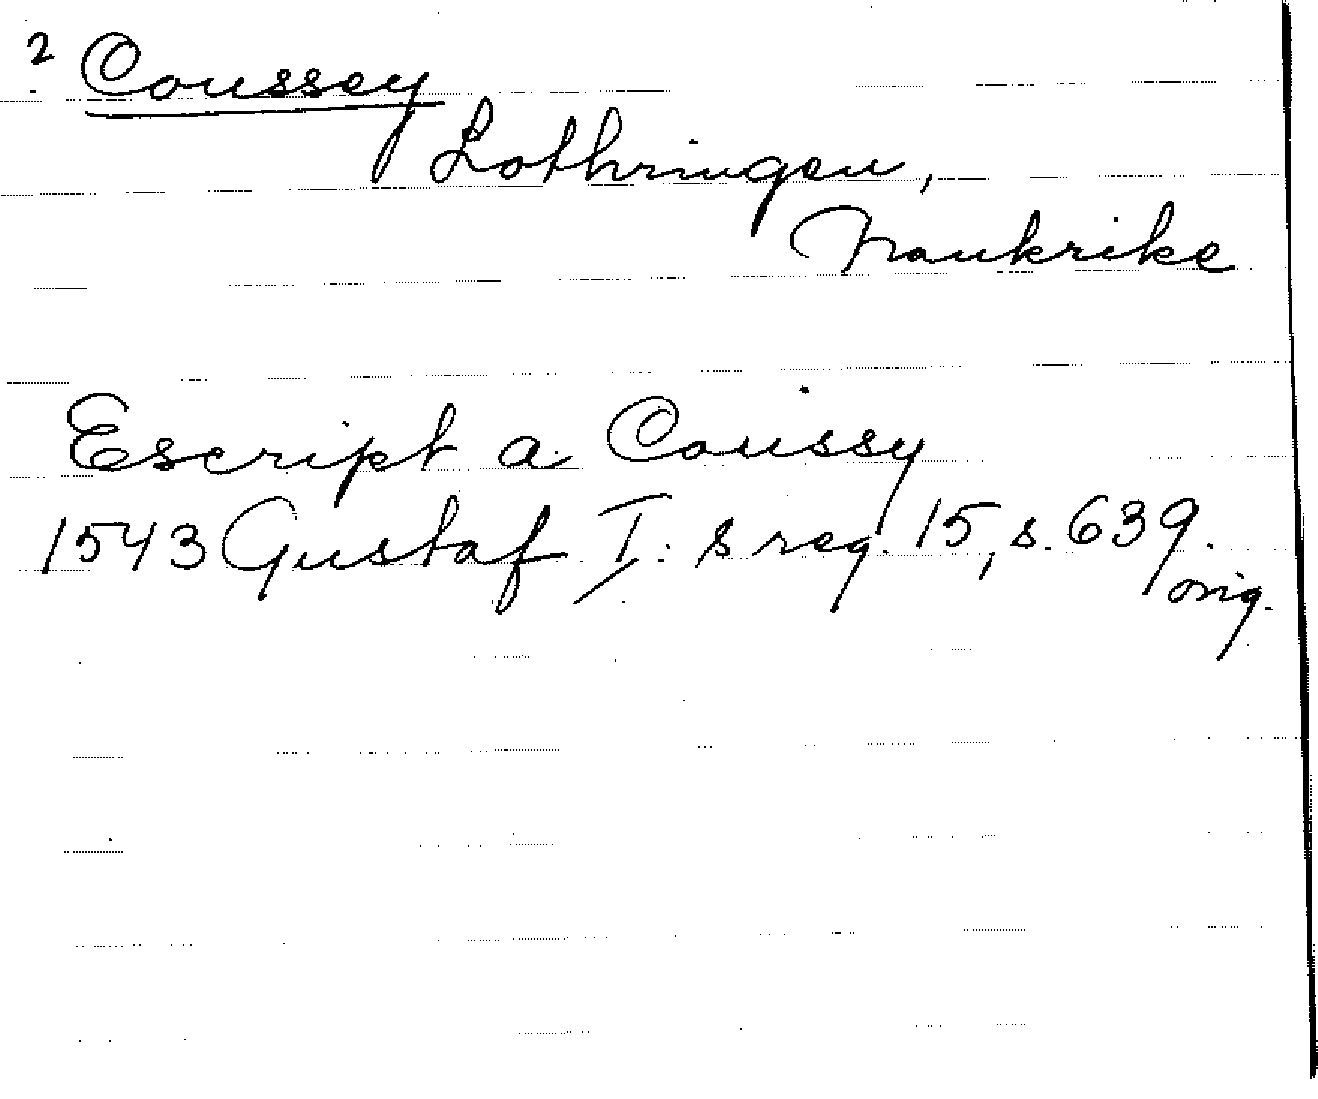 ? Coussey
Lothringen,
Frankrike
Escript a Coussy
1543 Gustaf I: s reg. 15, s. 639.
orig.